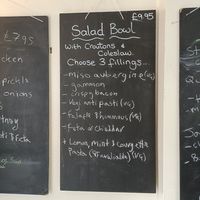 £7.95
cken
pickle
onions
Salad Bowl
£9.95
With Croutons &
Coleslaw.
Choose 3 fillings...
- miso aubergine (VG)
- gammon
- crispy bacon
- Veg antipasti (VG)
- Falafel & hummous (VG)
- Feta or Cheddar
+ Lemon, Mint & Courgette
Pasta (GF available) (VG)